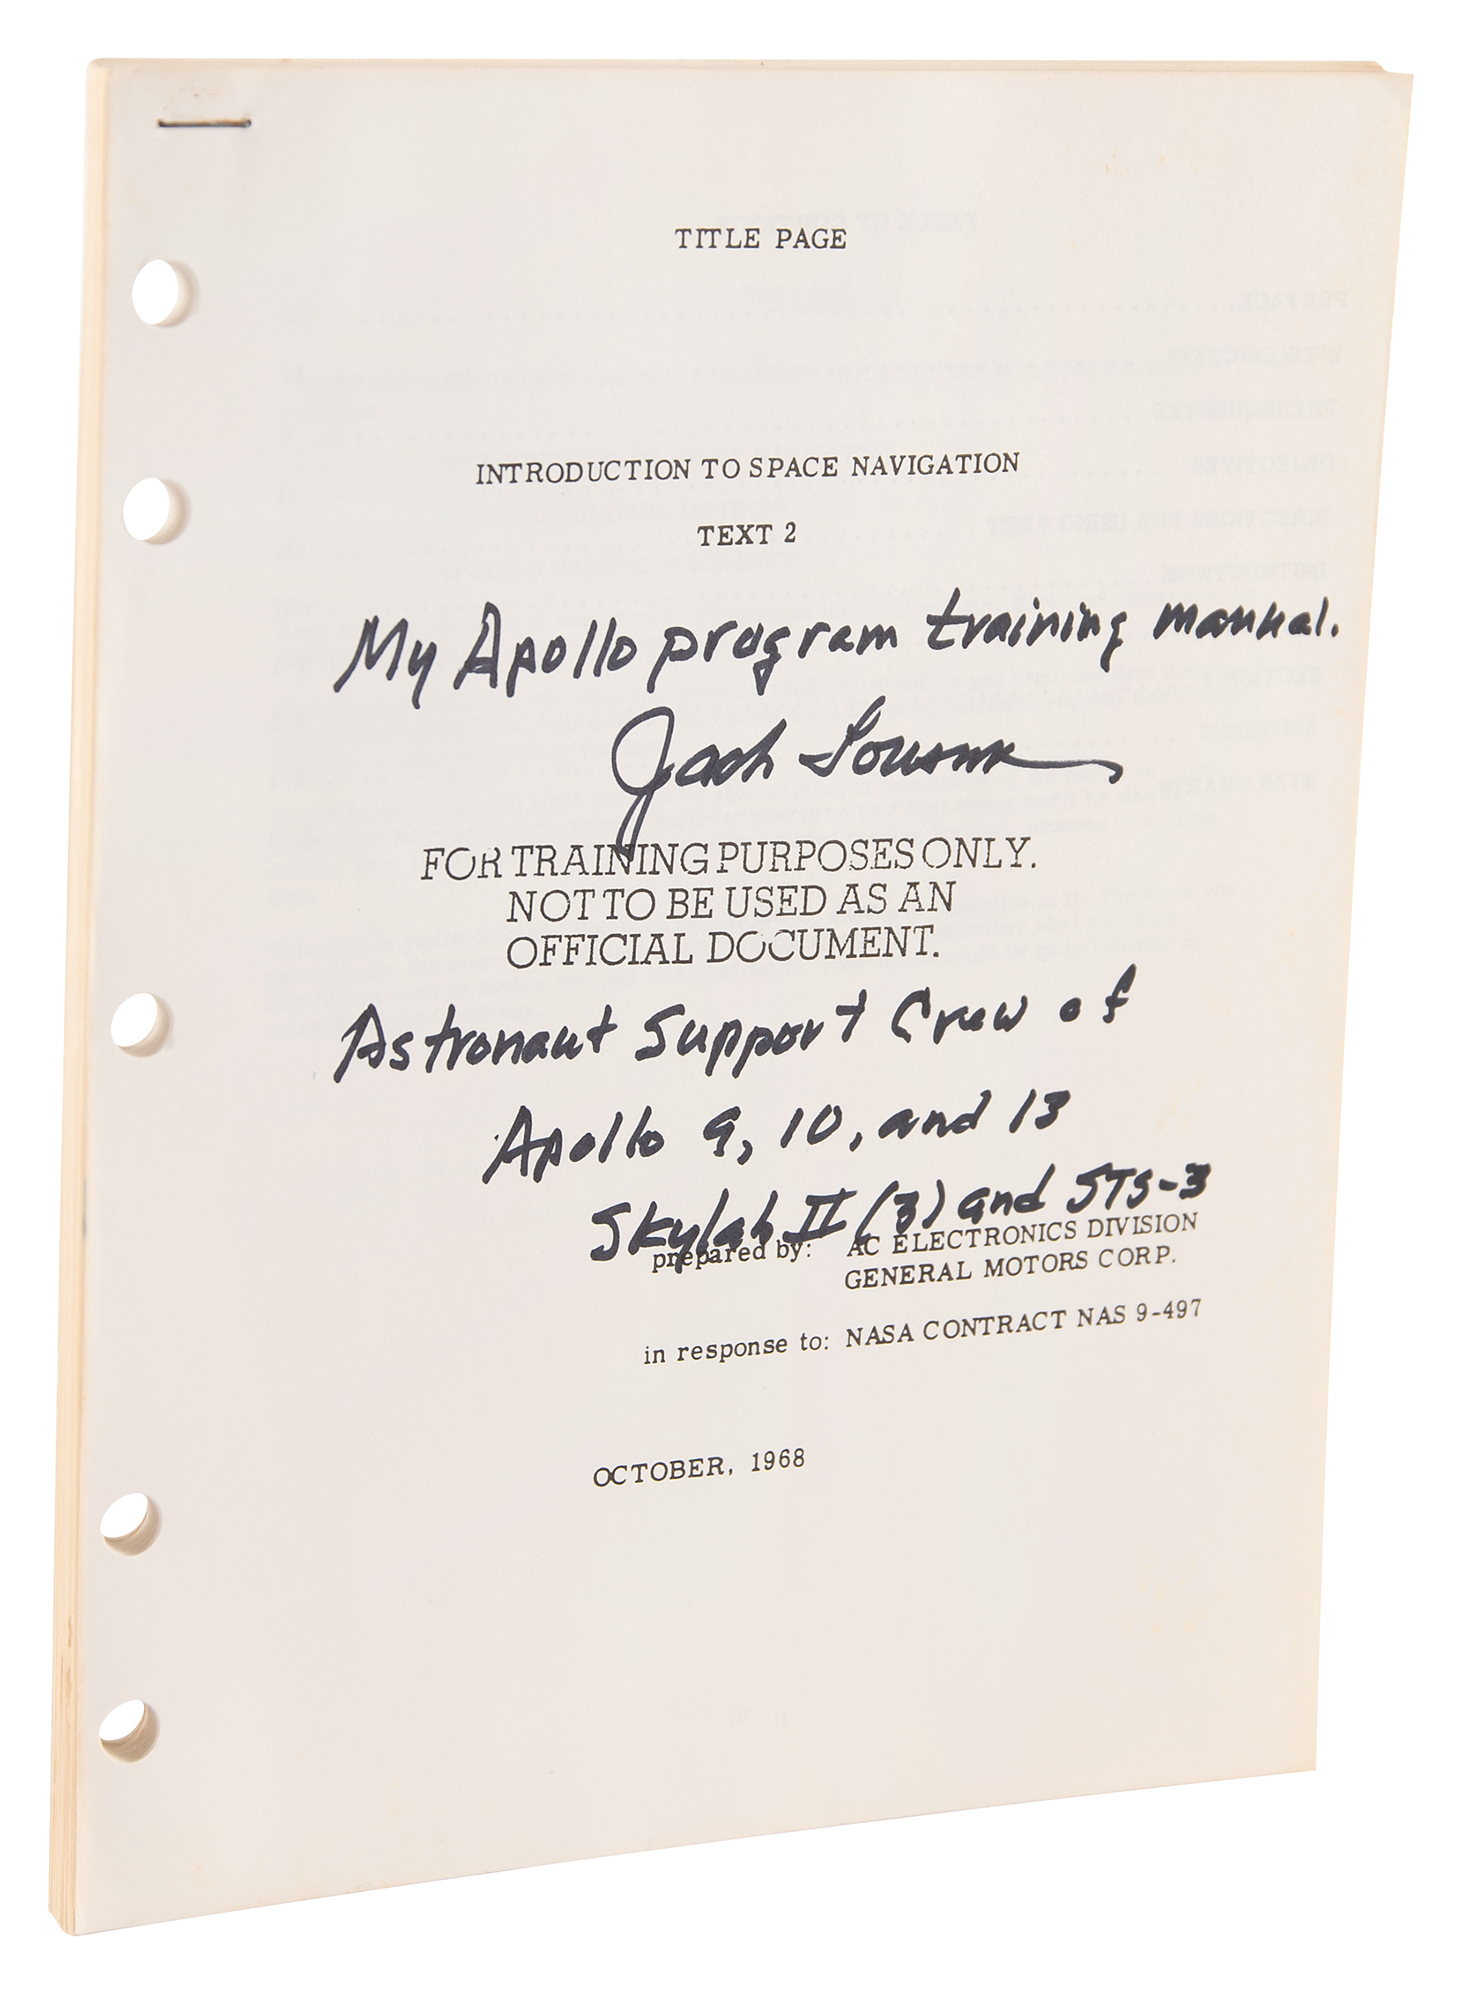 TITLE PAGE
INTRODUCTION TO SPACE NAVIGATION
TEXT 2
My Apollo program training manual.
Jack Lousma
FOR TRAINING PURPOSES ONLY.
NOT TO BE USED AS AN
OFFICIAL DOCUMENT.
Astronaut Support Crew of
Apollo 9, 10, and 13
Skylab II (3) and STS-3
prepared by: AC ELECTRONICS DIVISION
GENERAL MOTORS CORP.
in response to: NASA CONTRACT NAS 9-497
OCTOBER, 1968